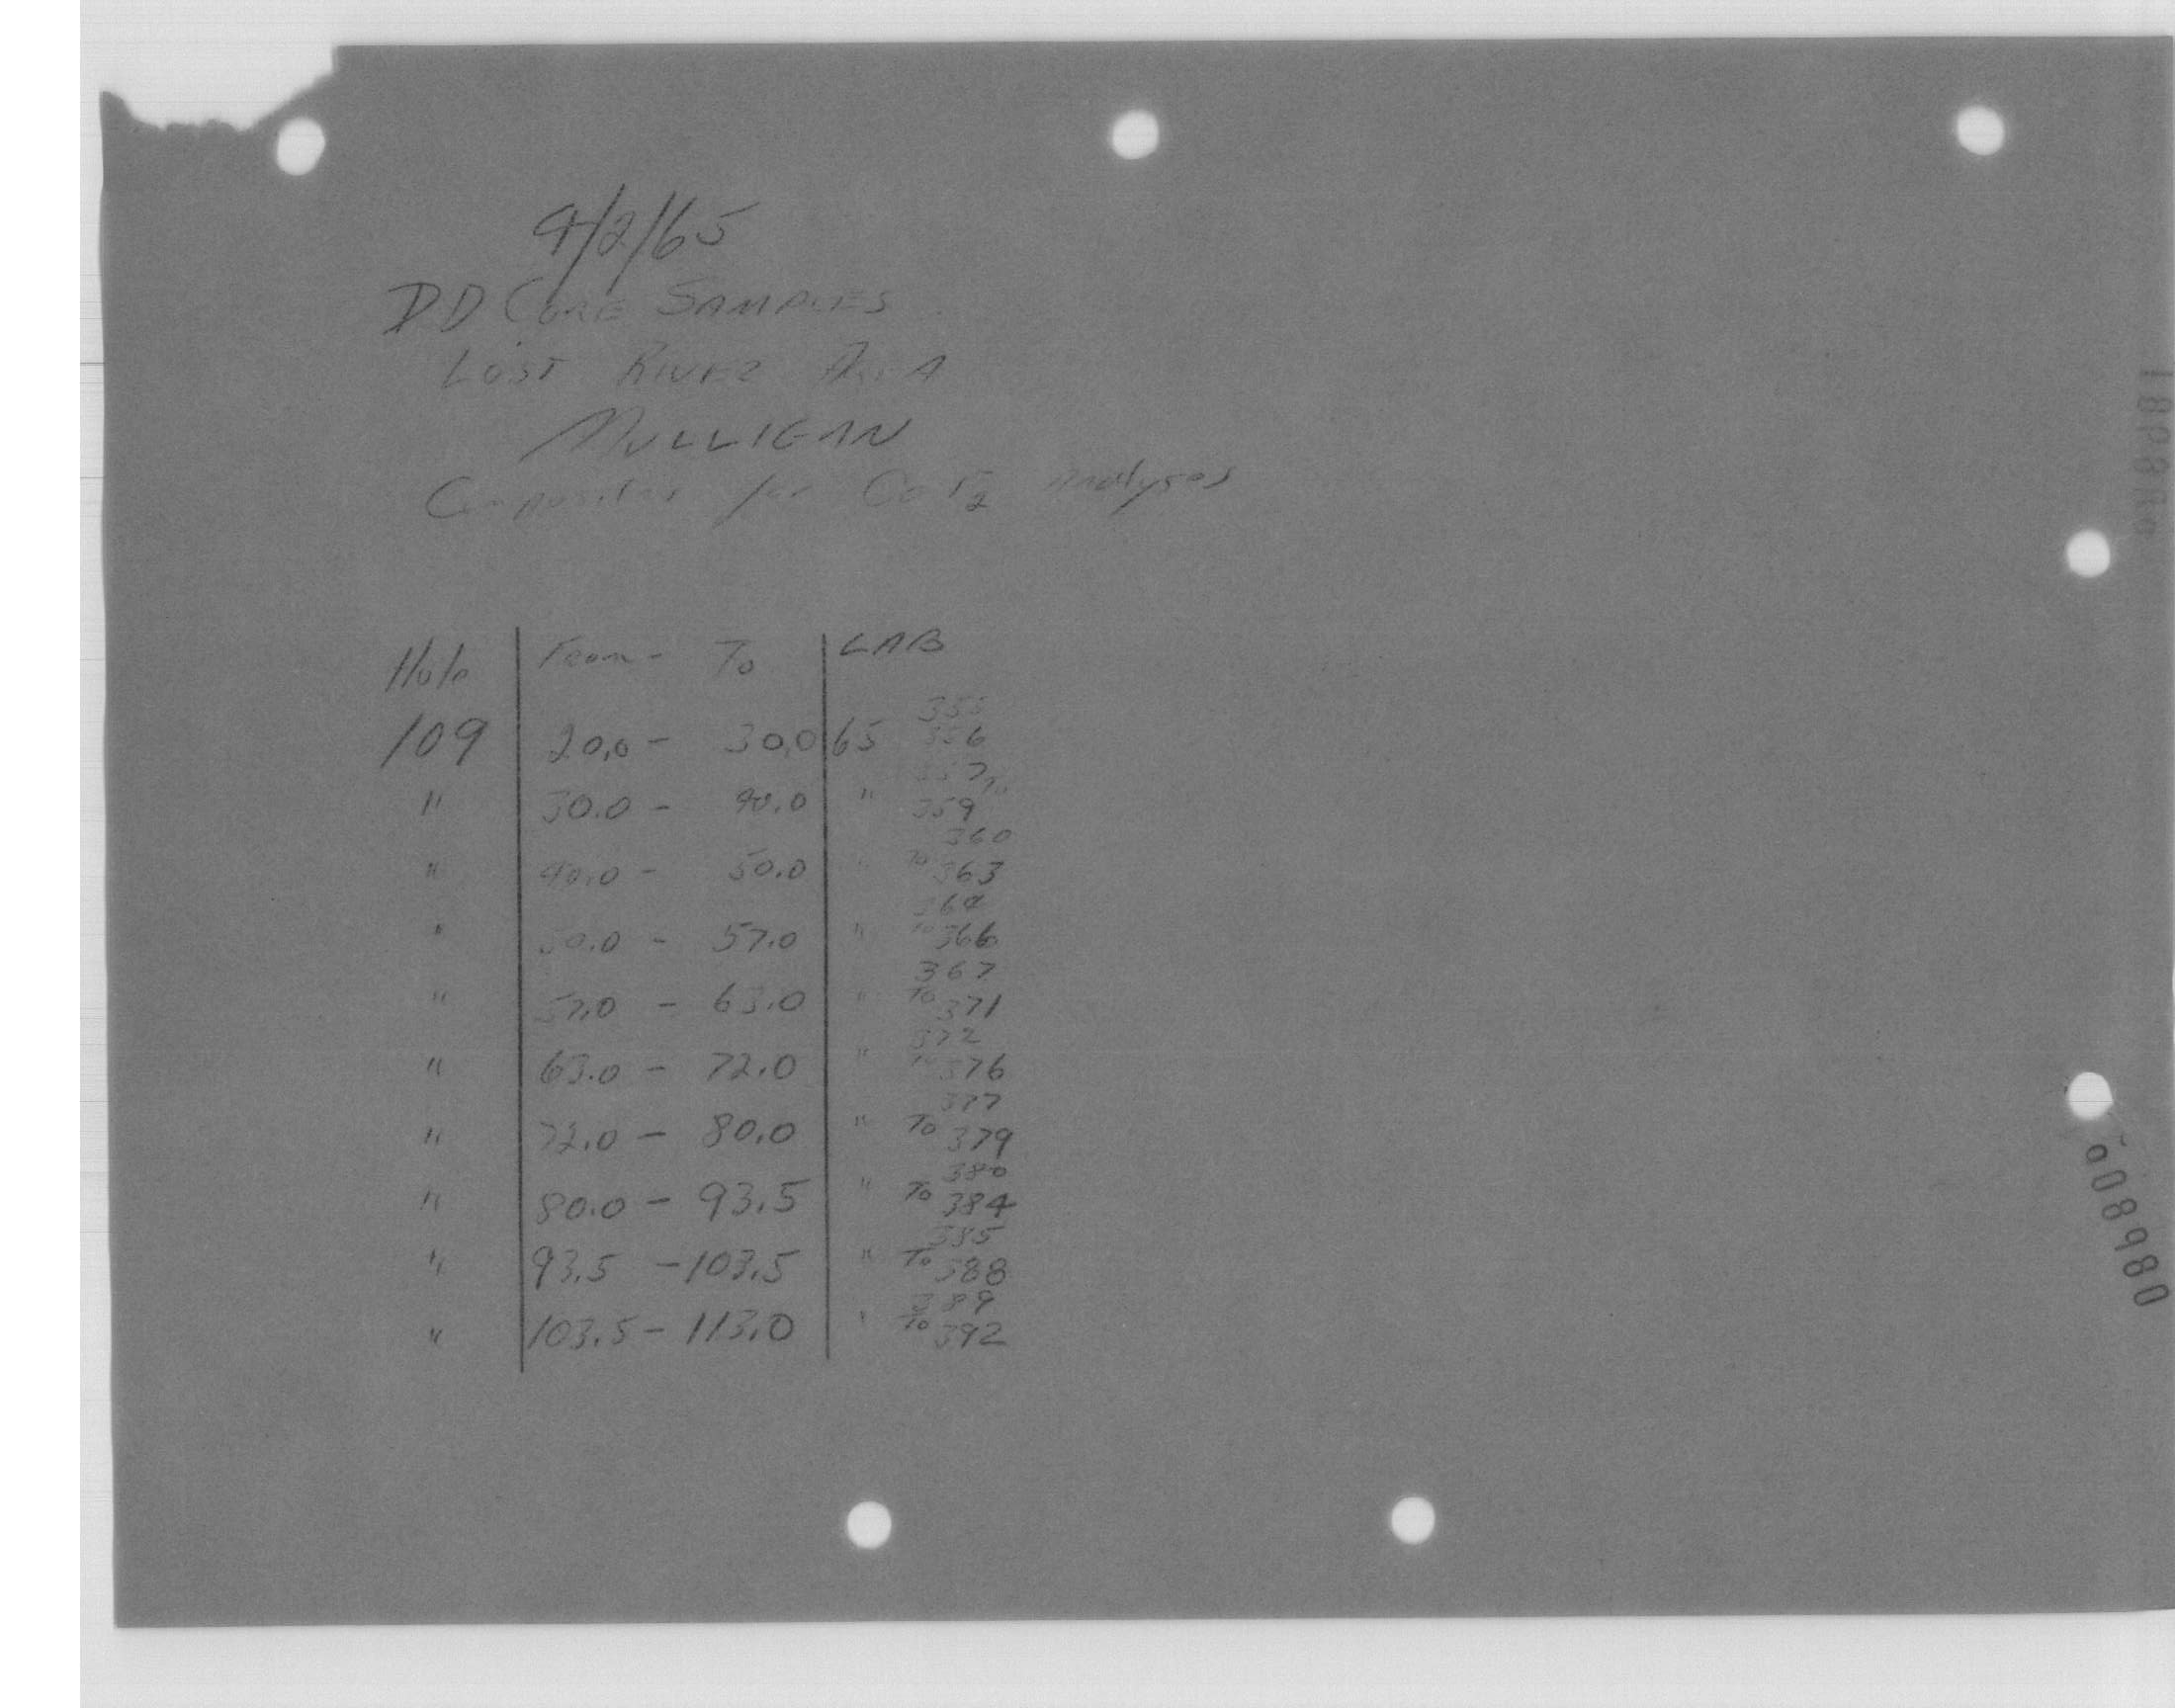 9/2/65
DD Core Samples
Lost River Area
Mulligan
Composites for CaF2 analyses
Hole From - To LAB
355
109 20.0 - 30.0 65 356
357
" 30.0 - 40.0 " 359
360
" 40.0 - 50.0 " To 363
364
" 50.0 - 57.0 " To 366
367
" 57.0 - 63.0 " To 371
372
" 63.0 - 72.0 " To 376
377
" 72.0 - 80.0 " To 379
380
" 80.0 - 93.5 " To 384
385
" 93.5 - 103.5 " To 388
389
" 103.5 - 113.0 " To 392